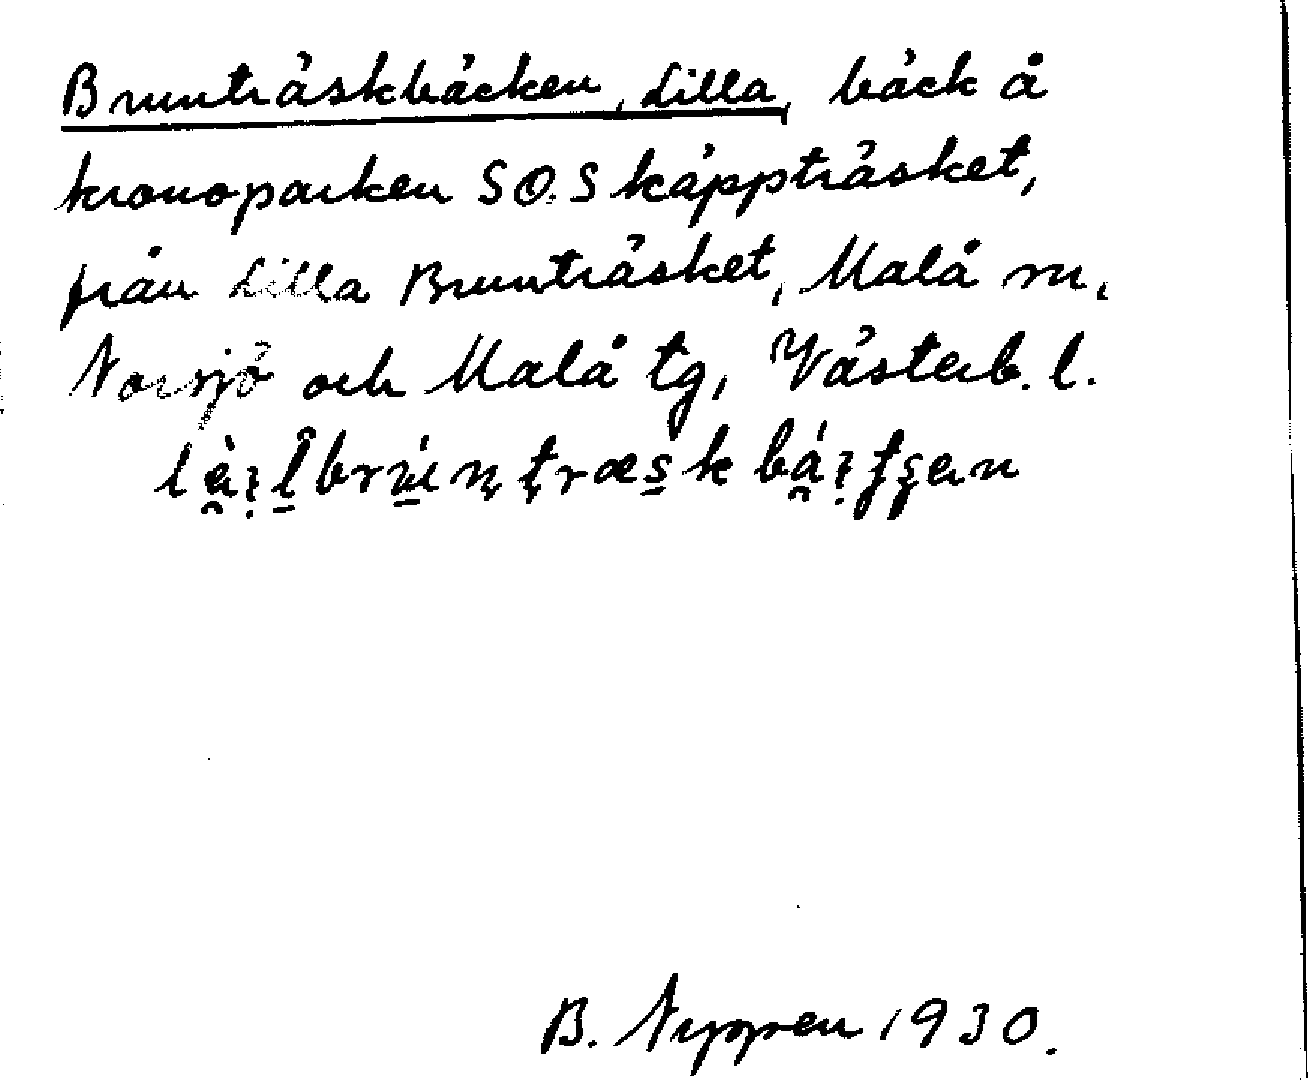 Brunträskbäcken, Lilla, bäck å
kronoparken S Ö. Skäppträsket,
från Lilla Brunträsket, Malå sn,
Norsjö och Malå tg, Västerb. l.
B. Nyppen 1930.